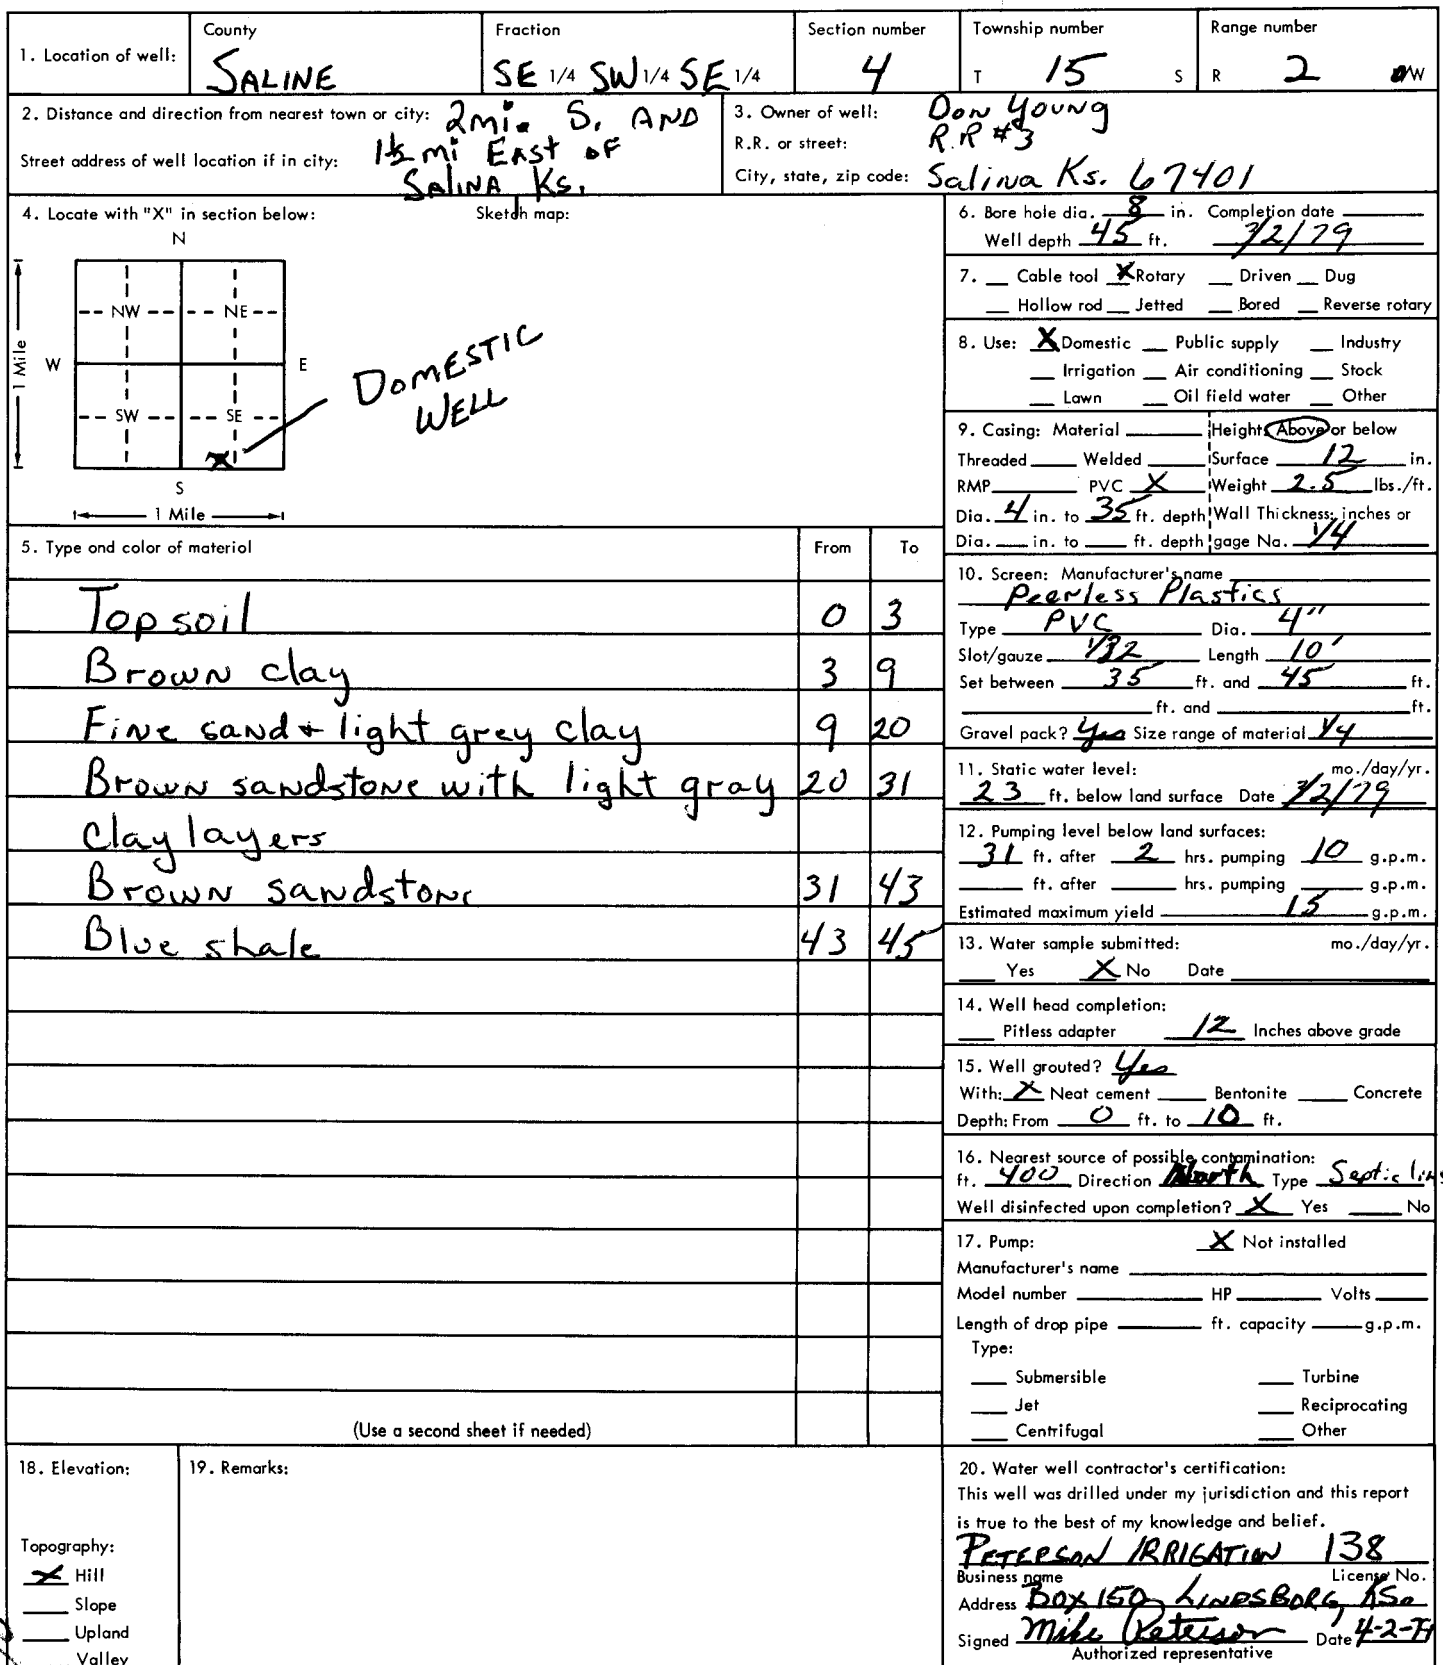 1. Location of well: County SALINE Fraction SE 1/4 SW 1/4 SE 1/4 Section number 4 Township number T 15 S Range number R 2 E/W
2. Distance and direction from nearest town or city: 2mi. S. AND
Street address of well location if in city: 1½ mi EAST OF
SALINA, KS.
3. Owner of well: Don Young
R.R. or street: R.R #3
City, state, zip code: Salina Ks. 67401
4. Locate with "X" in section below: Sketch map:
N
NW NE
W E
1 Mile
SW SE
X
S
1 Mile
DOMESTIC
WELL
5. Type and color of material From To
Topsoil 0 3
Brown clay 3 9
Fine sand + light grey clay 9 20
Brown sandstone with light gray 20 31
clay layers
Brown sandstone 31 43
Blue shale 43 45
(Use a second sheet if needed)
6. Bore hole dia. 8 in. Completion date
Well depth 45 ft. 3/2/79
7. Cable tool X Rotary Driven Dug
Hollow rod Jetted Bored Reverse rotary
8. Use: X Domestic Public supply Industry
Irrigation Air conditioning Stock
Lawn Oil field water Other
9. Casing: Material Height: Above or below
Threaded Welded Surface 12 in.
RMP PVC X Weight 2.5 lbs./ft.
Dia. 4 in. to 35 ft. depth Wall Thickness: inches or
Dia. in. to ft. depth gage No. 1/4
10. Screen: Manufacturer's name
Peerless Plastics
Type PVC Dia. 4"
Slot/gauze 1/32 Length 10'
Set between 35 ft. and 45 ft.
ft. and ft.
Gravel pack? Yes Size range of material 1/4
11. Static water level: mo./day/yr.
23 ft. below land surface Date 3/2/79
12. Pumping level below land surfaces:
31 ft. after 2 hrs. pumping 10 g.p.m.
ft. after hrs. pumping g.p.m.
Estimated maximum yield 15 g.p.m.
13. Water sample submitted: mo./day/yr.
Yes X No Date
14. Well head completion:
Pitless adapter 12 Inches above grade
15. Well grouted? Yes
With: X Neat cement Bentonite Concrete
Depth: From 0 ft. to 10 ft.
16. Nearest source of possible contamination:
ft. 400 Direction North Type Septic lins
Well disinfected upon completion? X Yes No
17. Pump: X Not installed
Manufacturer's name
Model number HP Volts
Length of drop pipe ft. capacity g.p.m.
Type:
Submersible Turbine
Jet Reciprocating
Centrifugal Other
18. Elevation:
Topography:
X Hill
Slope
Upland
Valley
19. Remarks:
20. Water well contractor's certification:
This well was drilled under my jurisdiction and this report
is true to the best of my knowledge and belief.
PETERSON IRRIGATION 138
Business name License No.
Address BOX 150, LINDSBORG, KS.
Signed Mike Peterson Date 4-2-79
Authorized representative